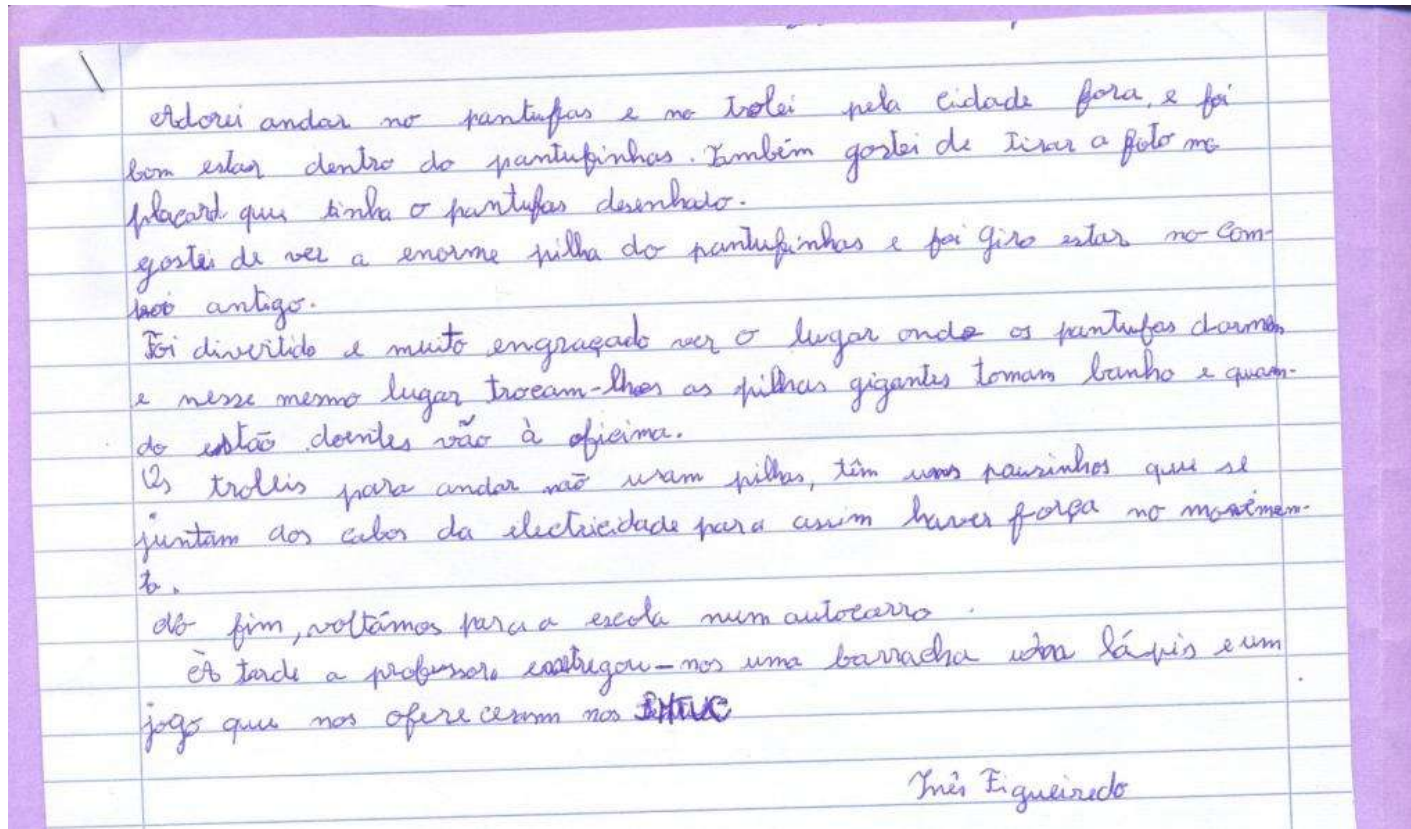 Adorei andar no pantufas e no trolei pela cidade fora, e foi
bom estar dentro do pantufinhas. Também gostei de tirar a foto no
placard que tinha o pantufas desenhado.
gostei de ver a enorme pilha do pantufinhas e foi giro estar no com-
boio antigo.
Foi divertido e muito engraçado ver o lugar onde os pantufas dormem
e nesse mesmo lugar trocam-lhes as pilhas gigantes tomam banho e quan-
do estão doentes vão à oficina.
Os trolleis para andar não usam pilhas, têm uns pauzinhos que se
juntam aos cabos da electricidade para assim haver força no movimen-
to.
No fim, voltámos para a escola num autocarro.
À tarde a professora entregou-nos uma borracha um lápis e um
jogo que nos ofereceram nos SMTUC
Inês Figueiredo